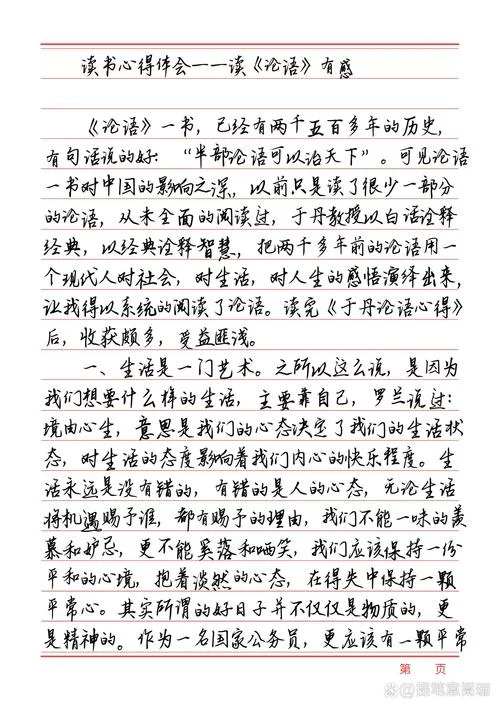 读书心得体会——读《论语》有感
《论语》一书，已经有两千五百多年的历史，
有句话说的好：“半部论语可以治天下”。可见论语
一书对中国的影响之深，以前只是读了很少一部分
的论语，从未全面的阅读过，于丹教授以白话诠释
经典，以经典诠释智慧，把两千多年前的论语用一
个现代人对社会，对生活，对人生的感悟演绎出来，
让我得以系统的阅读了论语。读完《于丹论语心得》
后，收获颇多，受益匪浅。
一、生活是一门艺术。之所以这么说，是因为
我们想要什么样的生活，主要靠自己，罗兰说过：
境由心生，意思是我们的心态决定了我们的生活状
态，对生活的态度影响着我们内心的快乐程度。生
活永远是没有错的，有错的是人的心态，无论生活
将机遇赐予谁，都有赐予的理由，我们不能一味的羡
慕和妒忌，更不能奚落和哂笑，我们应该保持一份
平和的心境，抱着淡然的心态，在得失中保持一颗
平常心。其实所谓的好日子并不仅仅是物质的，更
是精神的。作为一名国家公务员，更应该有一颗平常
第 页